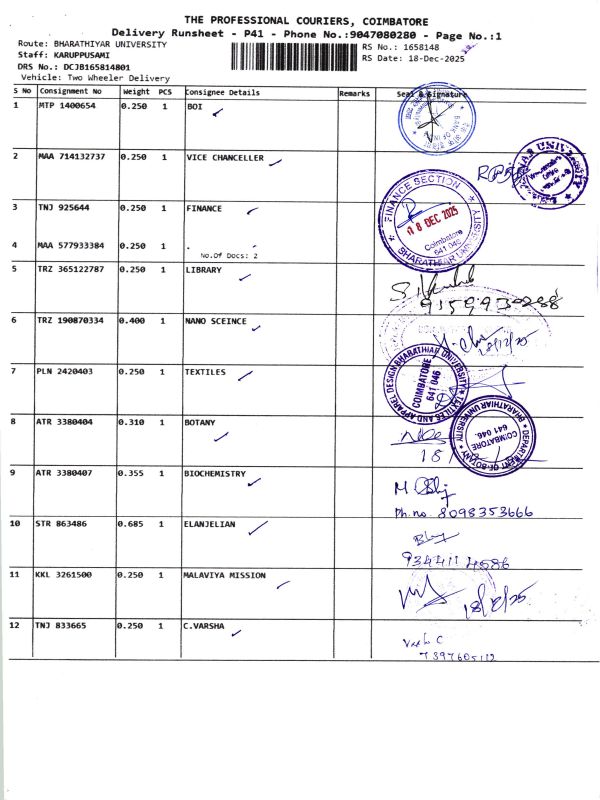 THE PROFESSIONAL COURIERS, COIMBATORE
Delivery Runsheet - P41 - Phone No.:9047080280 - Page No.:1
Route: BHARATHIYAR UNIVERSITY
Staff: KARUPPUSAMI
DRS No.: DCJB165814801
Vehicle: Two Wheeler Delivery
RS No.: 1658148
RS Date: 18-Dec-2025
S No Consignment No Weight PCS Consignee Details Remarks Seal & Signature
1 MTP 1400654 0.250 1 BOI
2 MAA 714132737 0.250 1 VICE CHANCELLER
3 TNJ 925644 0.250 1 FINANCE
FINANCE SECTION
18 DEC 2025
Coimbatore
641 046
BHARATHIAR UNIVERSITY
4 MAA 577933384 0.250 1 .
No.Of Docs: 2
5 TRZ 365122787 0.250 1 LIBRARY
9159930288
6 TRZ 190870334 0.400 1 NANO SCEINCE
7 PLN 2420403 0.250 1 TEXTILES
TEXTILES AND APPAREL DESIGN BHARATHIAR UNIVERSITY
COIMBATORE
641 046
8 ATR 3380404 0.310 1 BOTANY
DEPARTMENT OF BOTANY
BHARATHIAR UNIVERSITY
COIMBATORE
641 046.
18
9 ATR 3380407 0.355 1 BIOCHEMISTRY
Ph.no. 8098353666
10 STR 863486 0.685 1 ELANJELIAN
9344114586
11 KKL 3261500 0.250 1 MALAVIYA MISSION
18/12/25
12 TNJ 833665 0.250 1 C.VARSHA
7397605112